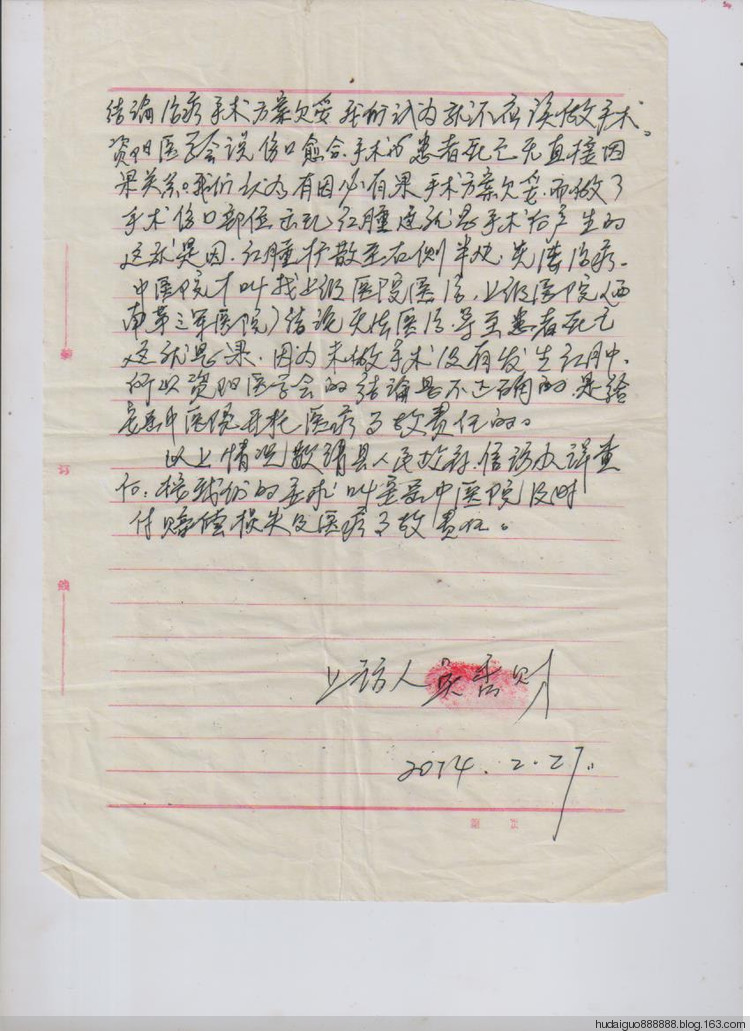 结论治疗手术方案欠妥我们认为就不应该做手术。
资阳医学会说伤口愈合.手术与患者死亡无直接因
果关系。我们认为有因必有果手术方案欠妥.而做了
手术伤口部位出现红腫这就是手术后产生的
这就是因.红腫扩散至右侧半处.无法治疗.
中医院才叫找上级医院医治,上级医院(西
南第三军医院)结论无法医治.导至患者死亡
这就是果.因为未做手术没有发生红肿.
所以资阳医学会的结论是不正确的.是给
安岳中医院开托医疗事故责任的。
以上情况敬请县人民政府.信访办详查
后,按我们的要求叫安岳中医院及时
付赔偿损失及医疗事故责任。
上访人
2014.2.27.
装
订
线
hudaiguo888888.blog.163.com